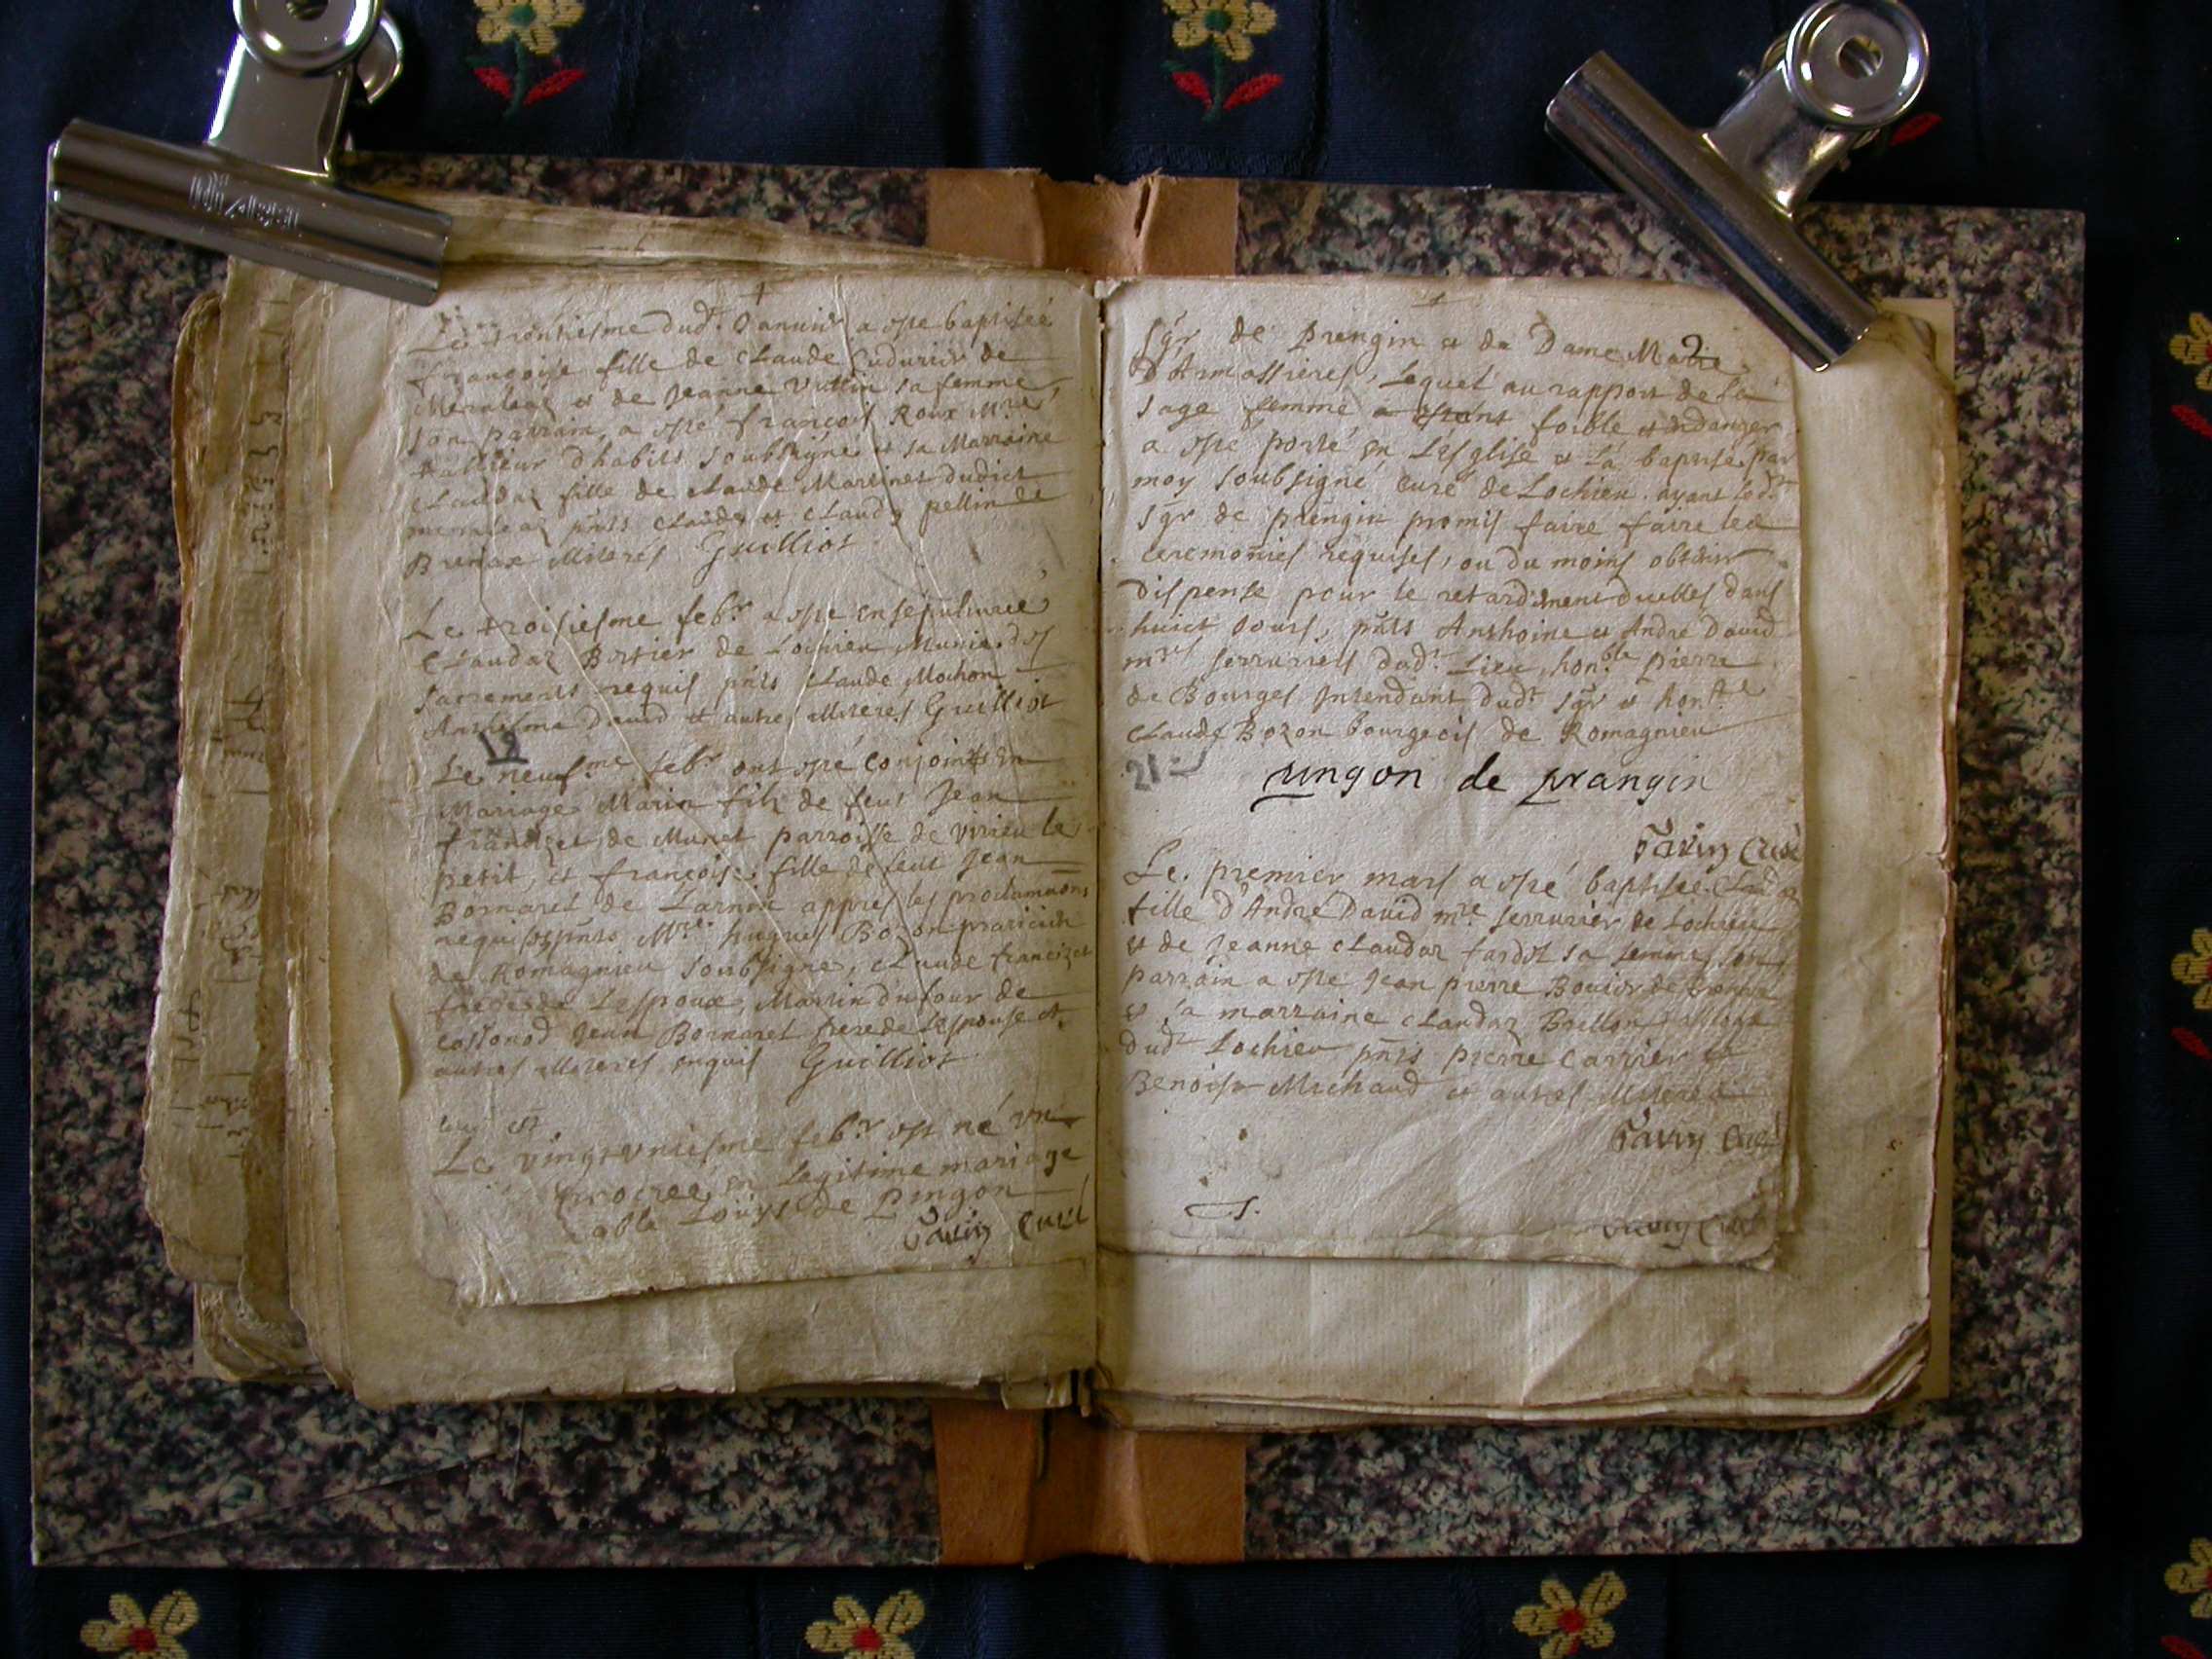 Le trentiesme dud.t Januier a este baptisée
françoise fille de Claude Cudurier de
Meraleaz et de Jeanne Vullin sa femme,
son parrain, a esté françois Roux M.re
tallieur dhabits soubsigné et sa Marraine
Claudaz fille de Claude Martinet dudict
meraleaz pñts Claude et Claudy pellin de
Brenax Guilliot
Le troisiesme feb.r a este ensepulturée
Claudaz Bertier de Lochieu Munie des
sacrements requis pñts Claude Mochon
Anthelme David et autres Guilliot
12
Le neuf.me feb.r ont esté conjoints en
Mariage Marin filz de feut Jean
francizet de Munet parroisse de virieu le
petit, et françoise fille de feut Jean
Bornaret de Larnin appres les proclamaõns
requises pñts M.re hugues Bozon praticien
de Romagnieu soubsigne, Claude francizet
frere de Lespoux, Martin dufour de
Cossonod Jean Bornaret frere de Lespouse et
autres enquis Guilliot
Le vingtvniesme feb.r est né vn
procreé en Legitime mariage
noble Louys de Pingon
Tavin Curé
2
sgr de Prengin et de Dame Marie
D'Armassieres, Lequel au rapport de la
sage femme estant foible et en danger
a este porté en Lesglise et La baptisé par
moy soubsigné Curé de Lochieu. ayant led.t
sgr de prengin promis faire faire les
ceremonies requises, ou du moins obtenir
Dispense pour le retardement d'icelles dans
huict Jours, pñts Anthoine et André David
m.res serruriers dud.t Lieu, hon.ble Pierre
de Bourges Intendant dud.t sgr et hon.ble
Claude Bozon bourgeois de Romagnieu
21
pingon de prangin
Tavin Curé
Le premier mars a esté baptisée Claudaz
fille d'André David m.re serrurier de Lochieu
et de Jeanne Claudaz fardet sa femme, son
parrain a este Jean pierre Bouier de Brenax
et sa marraine Claudaz Brillon
dud.t Lochieu pñts pierre Carrier et
Benoist Michaud et autres
Tavin Curé
Tavin Curé